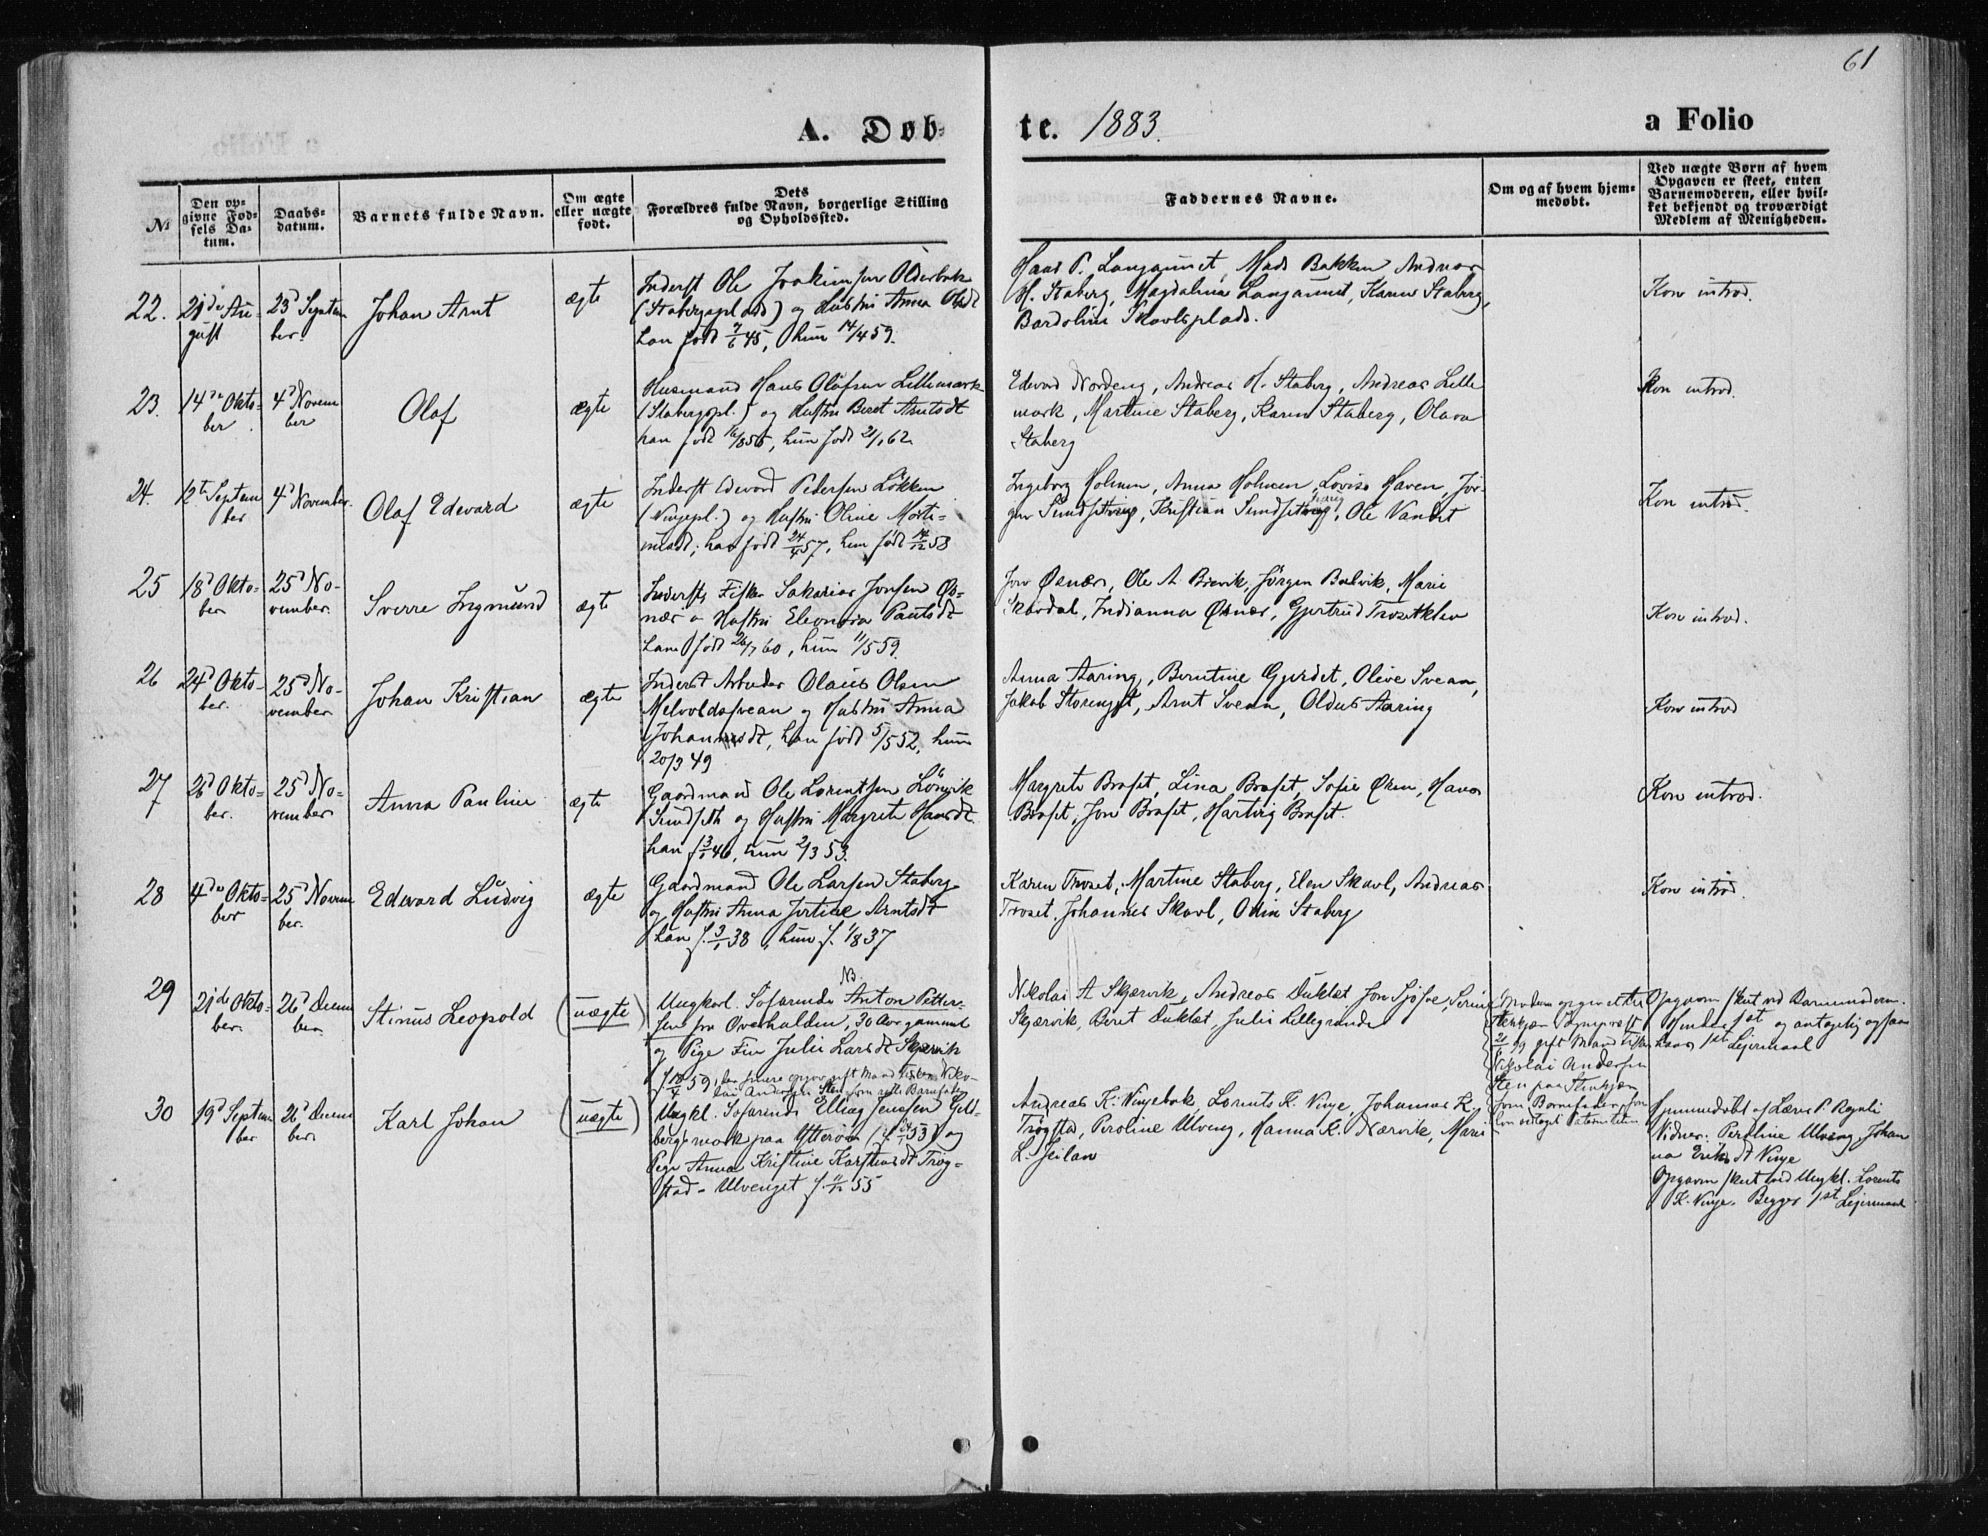 61
A. Døbte. 1883.
a Folio
No
Den opgivne Fødsels Datum.
Daabsdatum.
Barnets fulde Navn.
Om ægte eller uægte født.
Dets Forældres fulde Navn, borgerlige Stilling og Opholdssted.
Faddernes Navne.
Om og af hvem hjemmedøbt.
Ved uægte Børn af hvem Opgaven er skeet, enten Barnemoderen, eller hvilket bekjendt og troværdigt Medlem af Menigheden.
22.
21de August
23d September
Johan Arnt
ægte
Inderst Ole Joakimsen Olderbak
(Stabergspl ads) og Hustru Anna Olsdt
han født 7/6 45, hun 14/4 59.
Hans P. Langaunet, Mads Bakken Andreas
H. Staberg, Magdalina Langaunet, Karen Staberg,
Bardoline Skavlsplads.
Kon introd.
23.
14de Oktober
4d November
Olaf
ægte
Husmand Hans Olafsen Lillemark
(Stabergspl.) og Hustru Beret Arntsdt
hun født 21/1 62
Edevard Nordeng, Andreas H. Staberg, Andreas Lille
mark, Martine Staberg, Karen Staberg, Olava
Staberg
Kon introd.
24.
12te September
4d November.
Olaf Edevard
ægte
Inderst Edevard Pedersen Løkken
(Vinjepl.) og Hustru Oline Morti-
; han født 24/4 57, hun født 14/12 58
Ingeborg Holmen, Anna Holmen, Lovise Haven, Jør-
gen Sundsetvieg, Kristian Sundsetvieg, Ole Vandet
Kon introd.
25
18d Oktober
25d November.
Sverre Ingmund
ægte
Inderst, Fisker Sakarias Jonsen Øs-
nær o Hustru Eleonora Paulsdt
han født 26/7 60, hun 11/5 59.
Jon Øsnær, Ole A. Brevik, Jørgen Balvik, Marie
Skavdal, Indianna Øsnær, Gjertrud Trosetklev
Kon introd.
26
24d Oktober.
25d November
Johan Kristian
ægte
Inderst Arbeider Olaus Olsen
Melvoldsvean og Hustru Anna
Johannesdt, han født 5/5 52, hun
20/3 49
Anna Aaring, Berntine Gjerdet, Olive Svean,
Jakob Storenget, Arnt Svean, Oldus Aaring
Kon introd
27
28d Oktober.
25d November
Anna Pauline
ægte
Gaardmand Ole Lorentsen Lønvik
Sundseth og Hustru Margrete Hansdt
han f 3/1 46, hun 2/3 53.
Margrete Braset, Lina Braset, Sofie Øren, Hans
Braset, Jon Braset, Hartvig Braset.
Kon introd.
28
4de Oktober
25d November.
Edevard Ludvig
ægte
Gaardmand Ole Larsen Staberg
og Hustru Anna Jertine Arntsdt
han f. 3/1 38, hun f. 1/8 37
Karen Troset, Martine Staberg, Elen Skavl, Andreas
Troset, Johannes Skavl, Odin Staberg
Kon introd.
29
21de Oktober.
26d December
Stinus Leopold
(uægte)
NB.
Ungkarl. Søfarende Anton Petter-
sen fra Overhalden, 30 Aar gammel
og Pige Fin Julie Larsdt Skjærvik
f 18/4 59, har senere opgivet gift Mand Fisker Niko-
lai Andersen Sten som rette Barnefader
Nikolai A Skjærvik, Andreas Duklæt, Jon Sjøsve, Serine
Skjærvik, Beret Duklæt, Julie Lillegrande
Moderen opgiver efter
Stenkjær
gift Mand Fisker
Nikolai Andersen
Sten paa Stenkjær
som Barnefader,
han vedtaget Paterniteten
Opgaven skeet ved Barnemoderen.
Hendes 1st og antagelig ogsaa
hans 1st Leiermaal
30
19d September
26d December.
Karl Johan
(uægte)
Ungkl. Søfarende Elling Jensen Geld-
bergsmark paa Ytterøen (f. 24/1 53) og
Pige Anna Kristine Karstensdt Trøg-
stad-Ulvenget f. 55
Andreas K. Vinjebak, Lorents K. Vinje, Johannes K.
Trøgstad, Peroline Ulveng, Hanna K. Nærvik, Marie
L. Feilan
Hjemmedøbt af Lærer P. Rognli
Vidner: Peroline Ulveng, Johan
na Eriksdt Vinje
Opgaven skeet ved Ungkl. Lorents
K. Vinje. Begges 1st Leiermaal